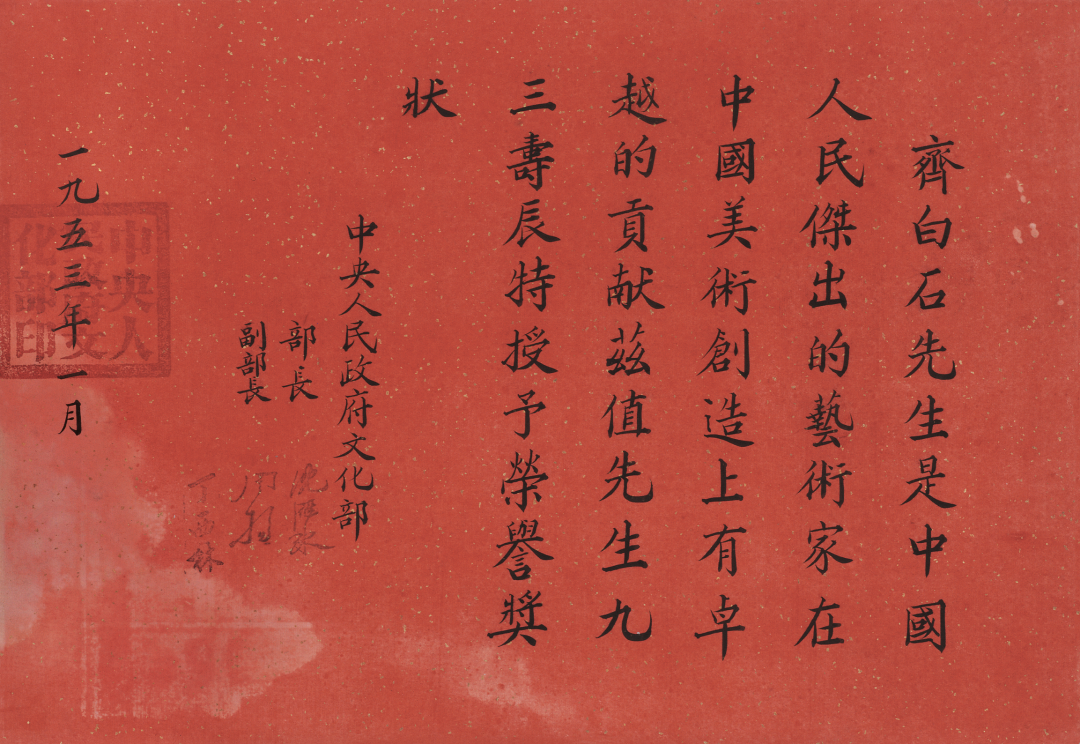 齊白石先生是中國
人民傑出的藝術家在
中國美術創造上有卓
越的貢献茲值先生九
三壽辰特授予榮譽奬
狀
中央人民政府文化部
部長
沈雁冰
副部長
周揚
丁西林
一九五三年一月
中央人民政府文化部印